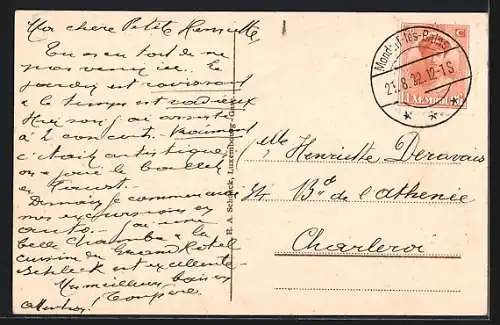 Ma chère Petite Henriette
Tu as eu tort de ne
pas venir ici. Le
jardin est ravissant
& le temps est radieux
Hier soir j'ai assisté
à 1 concert. Vraiment
c'était artistique
on a joué le ballet
de Faust.
Demain je commencerai
mes excursions en
auto. J'ai une
belle Chambre & la
cuisine du Grand Hotel
Schleck est excellente.
Un meilleur baiser
Ton père
E. A. Schaack, Luxembourg-Gare
Mondorf-les-Bains
21.8.22. 12-1 S
LUXEMBOURG
Melle Henriette Deravais
34 Bd de l'athénée
Charleroi